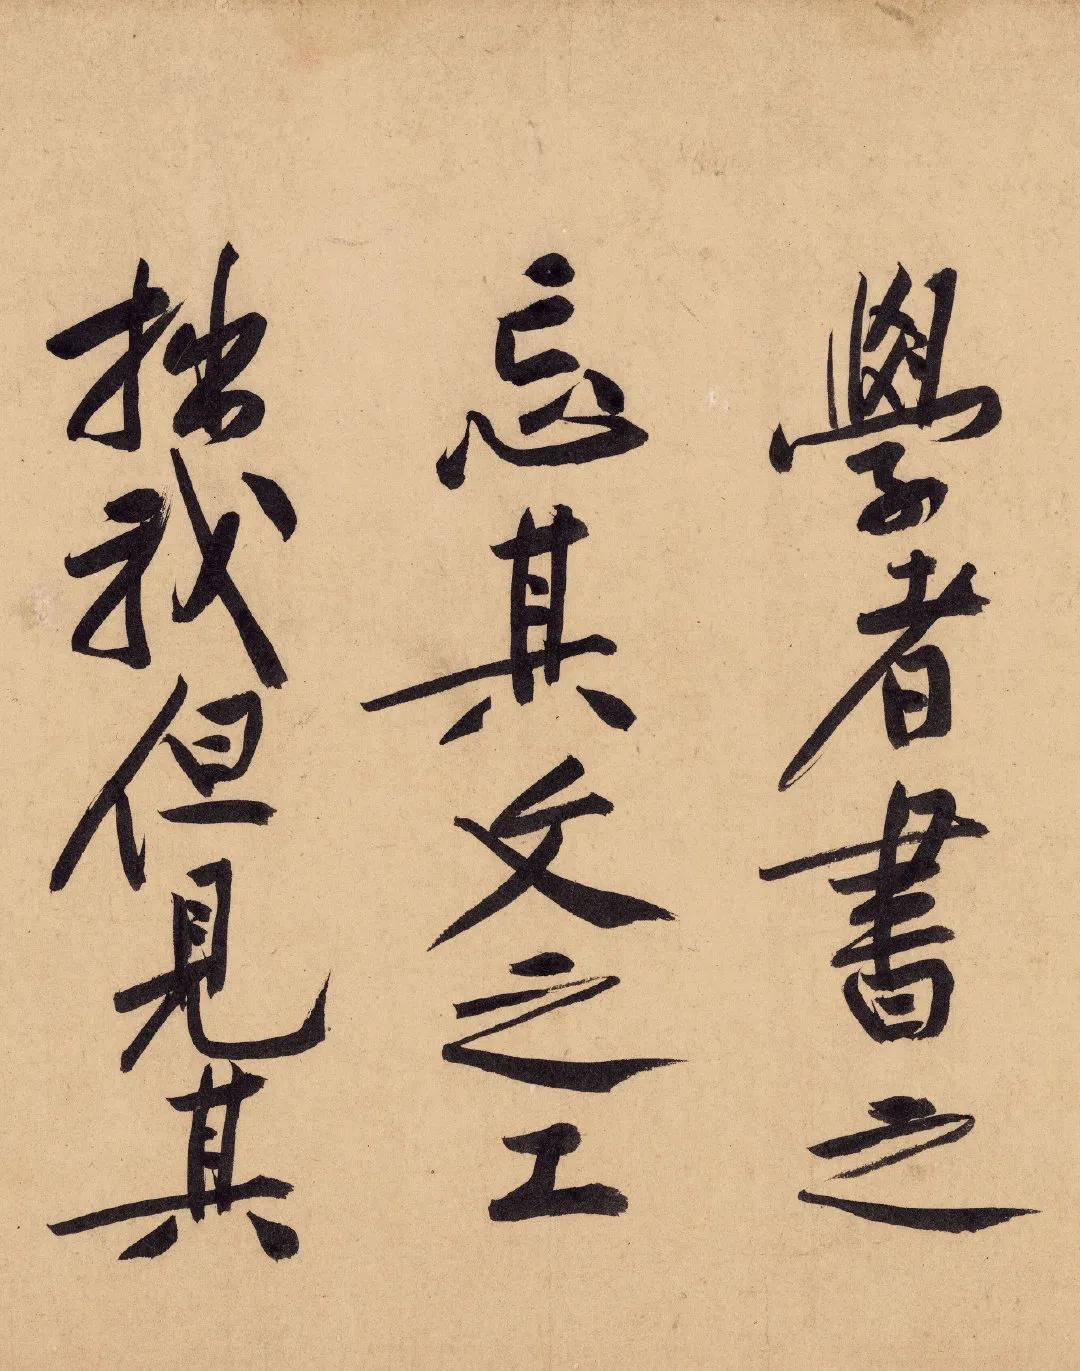 學者書之
忘其文之工
拙我但見其